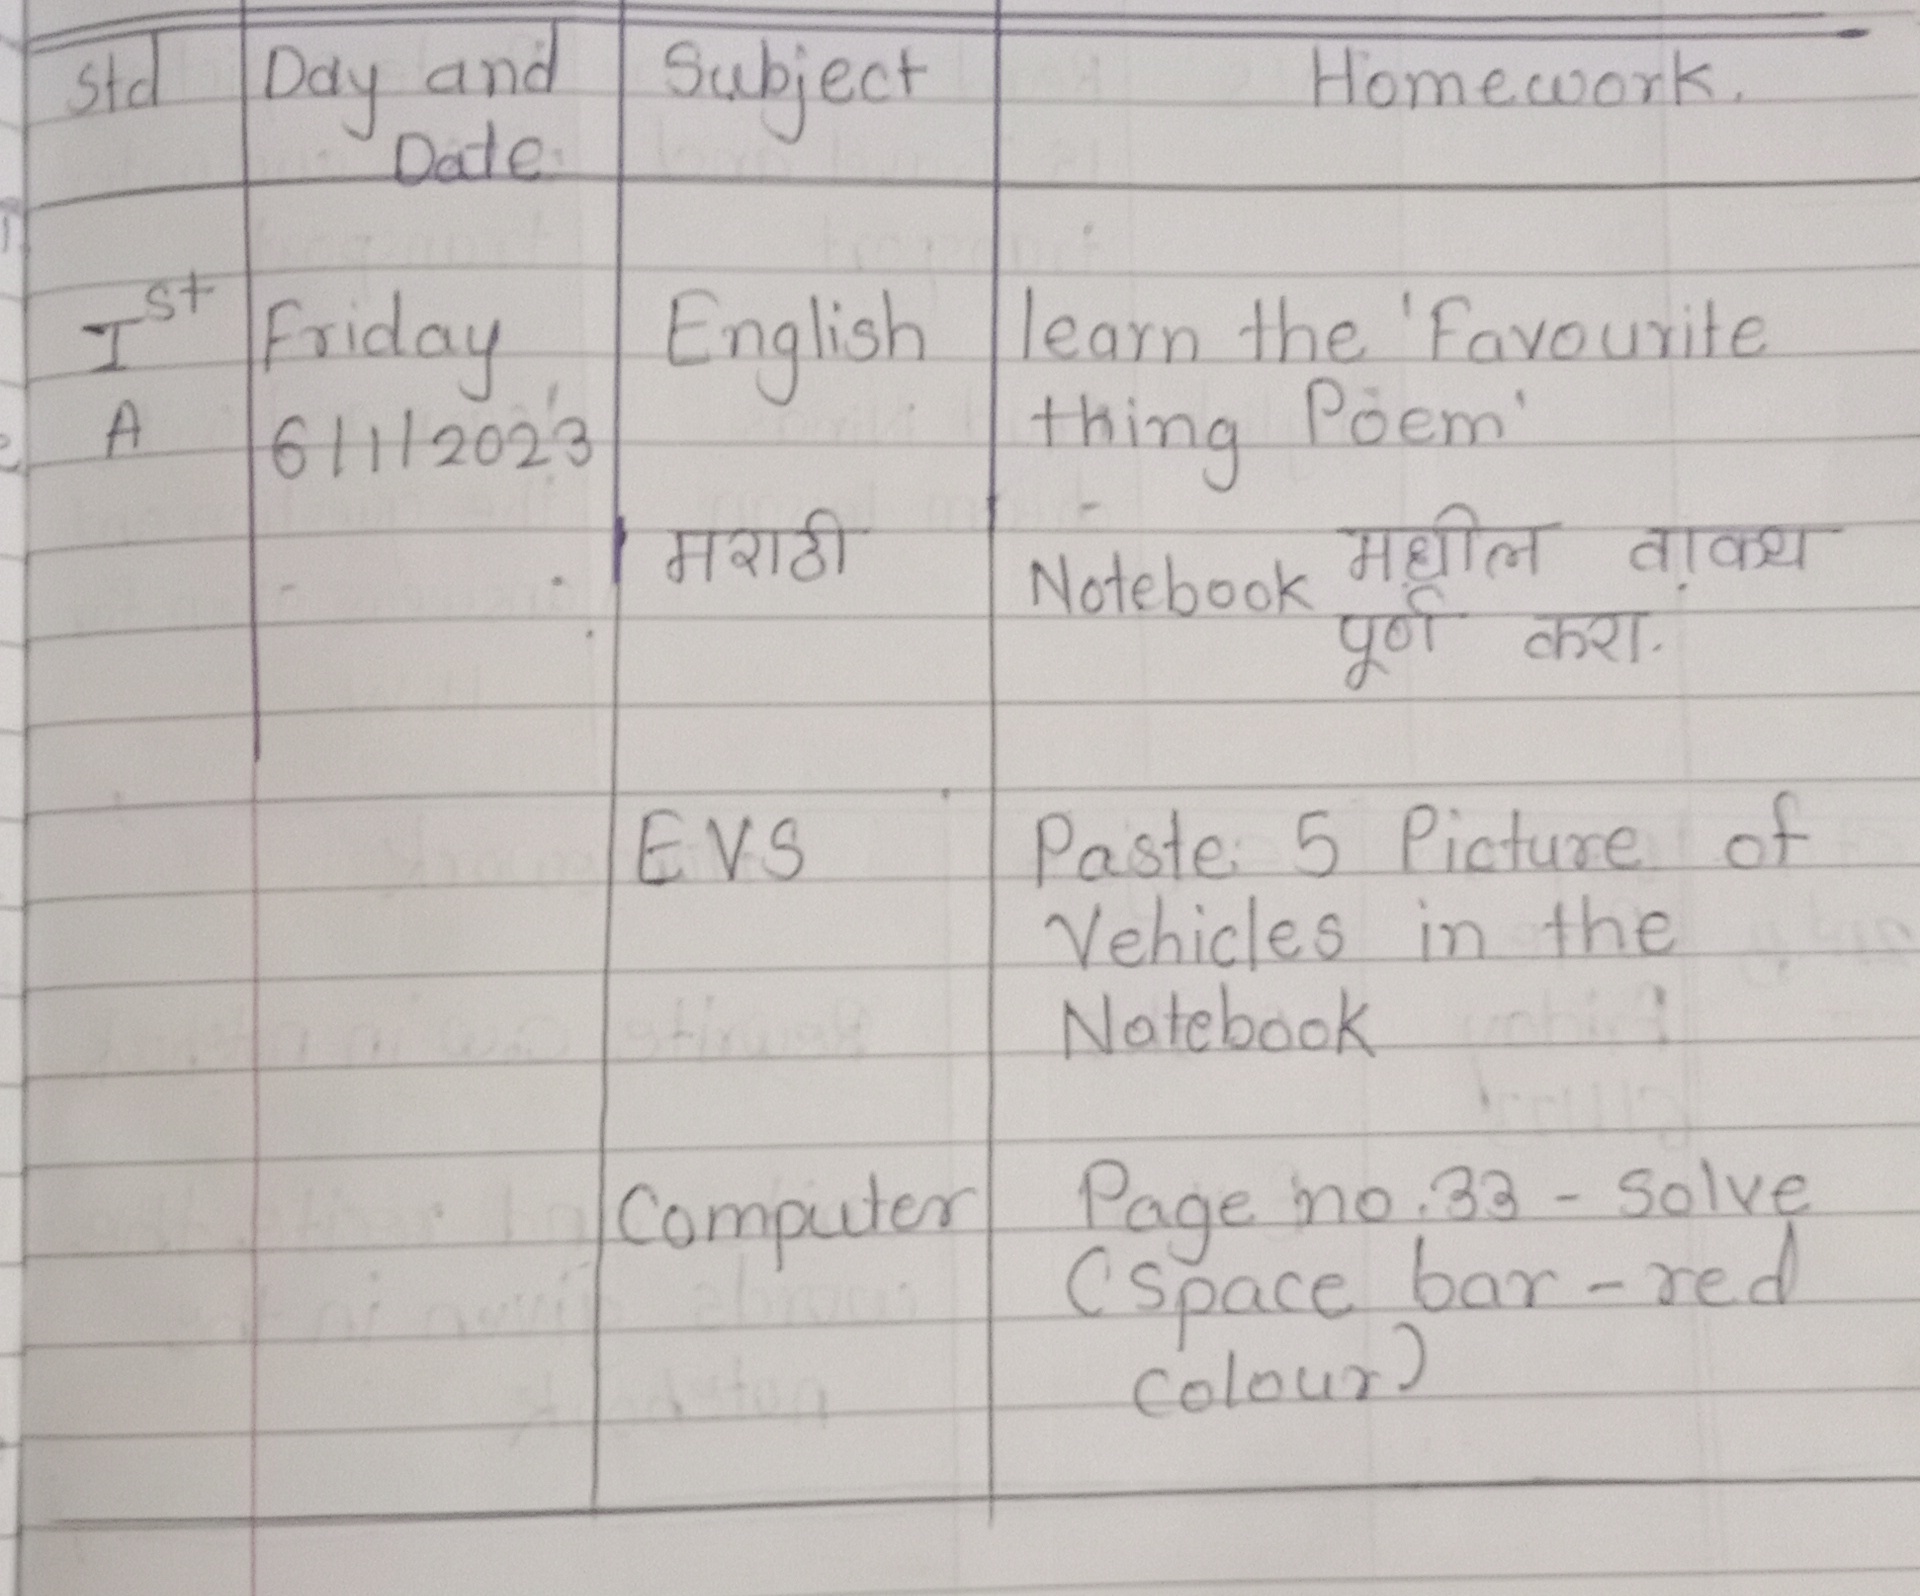 Std Day and Subject Homework.
Date
Ist Friday English learn the 'Favourite
A 6/1/2023 thing Poem'
मराठी Notebook मधील वाक्य
पूर्ण करा.
EVS Paste 5 Picture of
Vehicles in the
Notebook
Computer Page no.33 - Solve
(Space bar - red
colour)